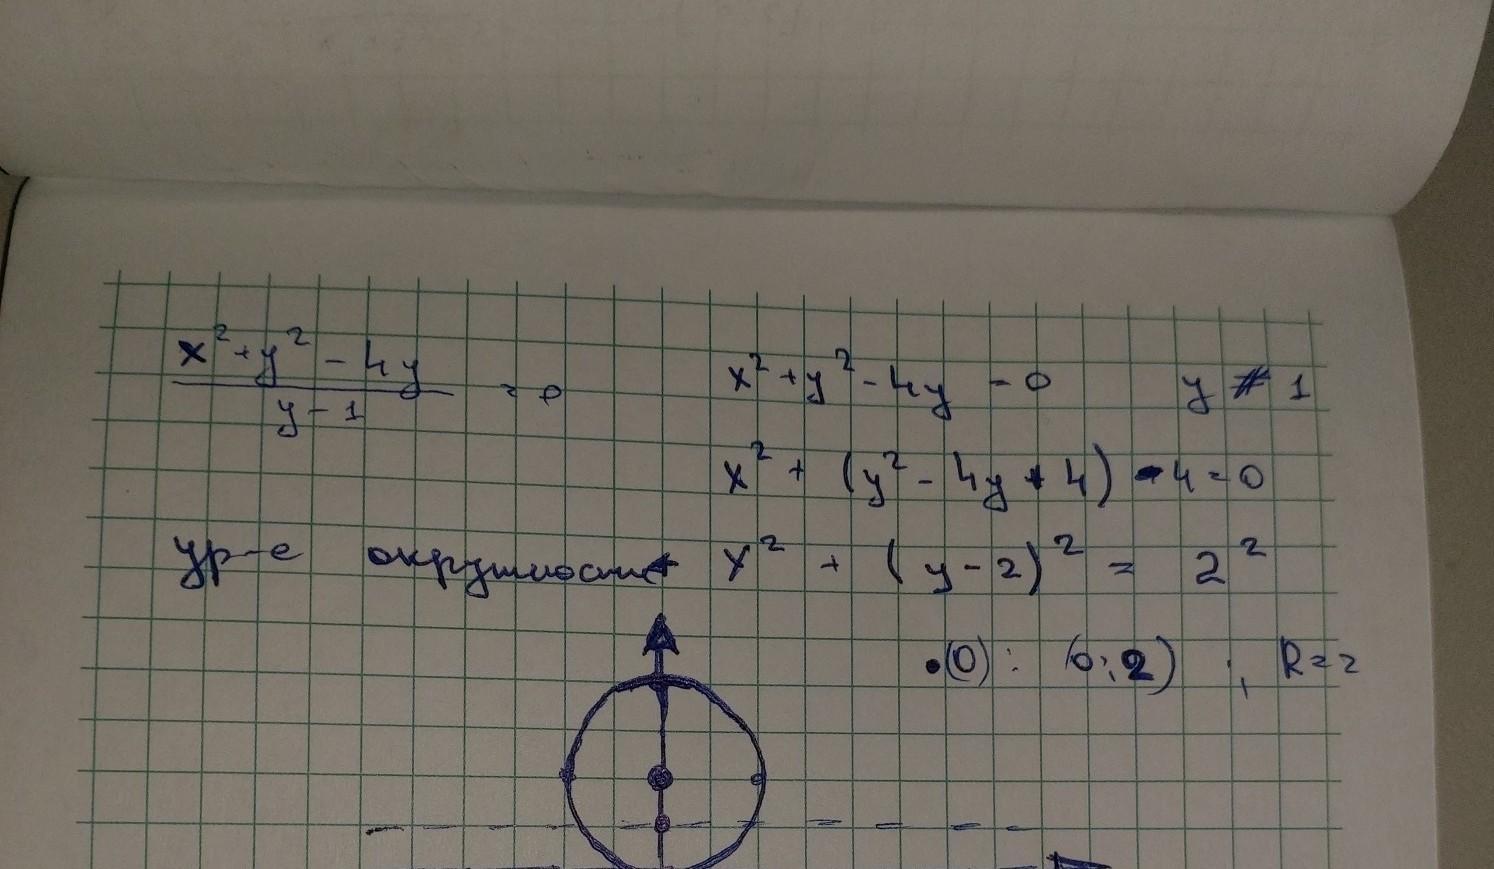 x² + y² - 4y / y - 1 = 0    x² + y² - 4y = 0    y ≠ 1
x² + (y² - 4y + 4) - 4 = 0
ур-е окружности x² + (y - 2)² = 2²
•(0): (0; 2) ; R = 2